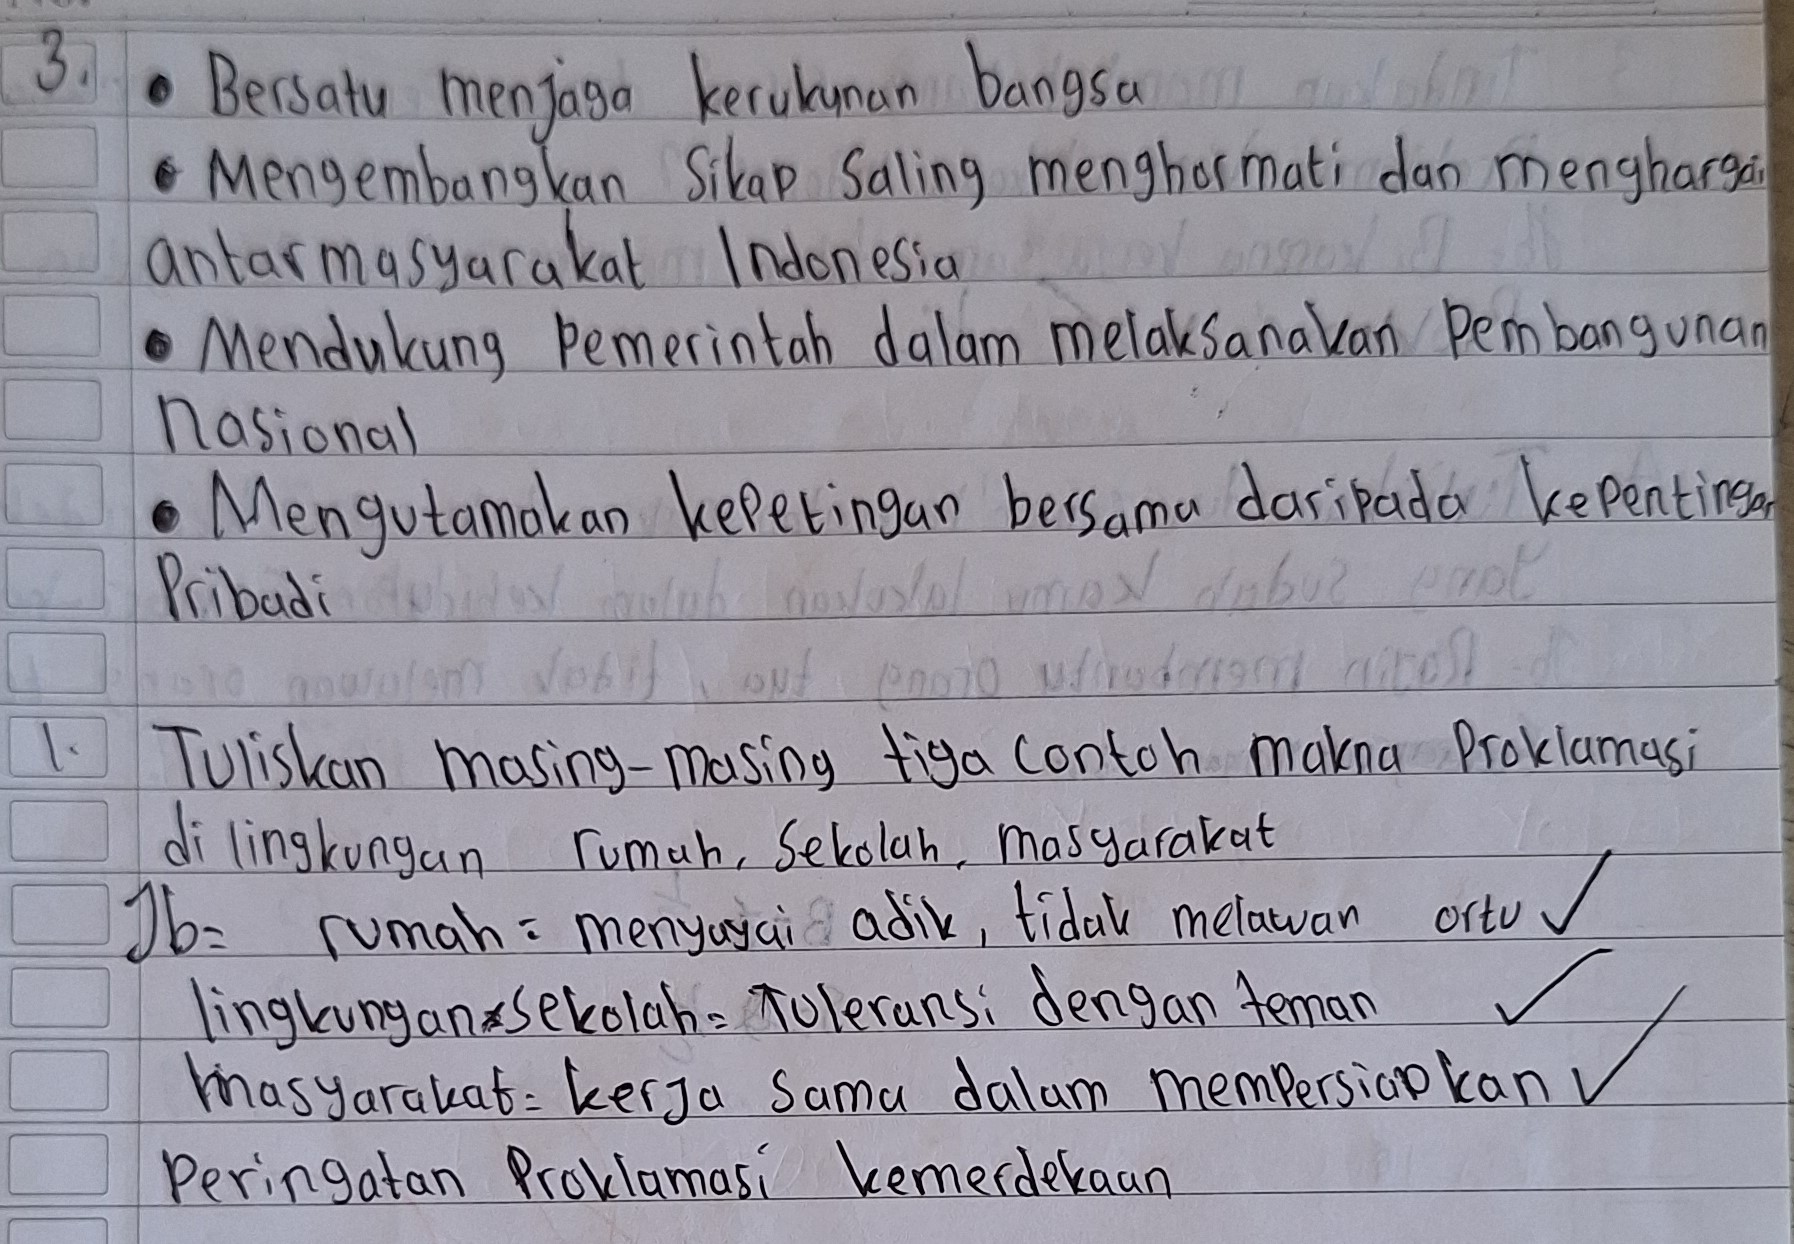 3. • Bersatu menjaga kerukunan bangsa
• Mengembangkan Sikap Saling menghormati dan menghargai
antarmasyarakat Indonesia
• Mendukung Pemerintah dalam melaksanakan Pembangunan
nasional
• Mengutamakan kepetingan bersama daripada kepentingan
Pribadi
1. Tuliskan masing-masing tiga contoh makna Proklamasi
di lingkungan rumah, Sekolah, masyarakat
Jb= rumah = menyayai adik, tidak melawan ortu ✓
lingkungan sekolah= Toleransi dengan teman ✓
masyarakat= kerja Sama dalam mempersiapkan ✓
Peringatan Proklamasi kemerdekaan